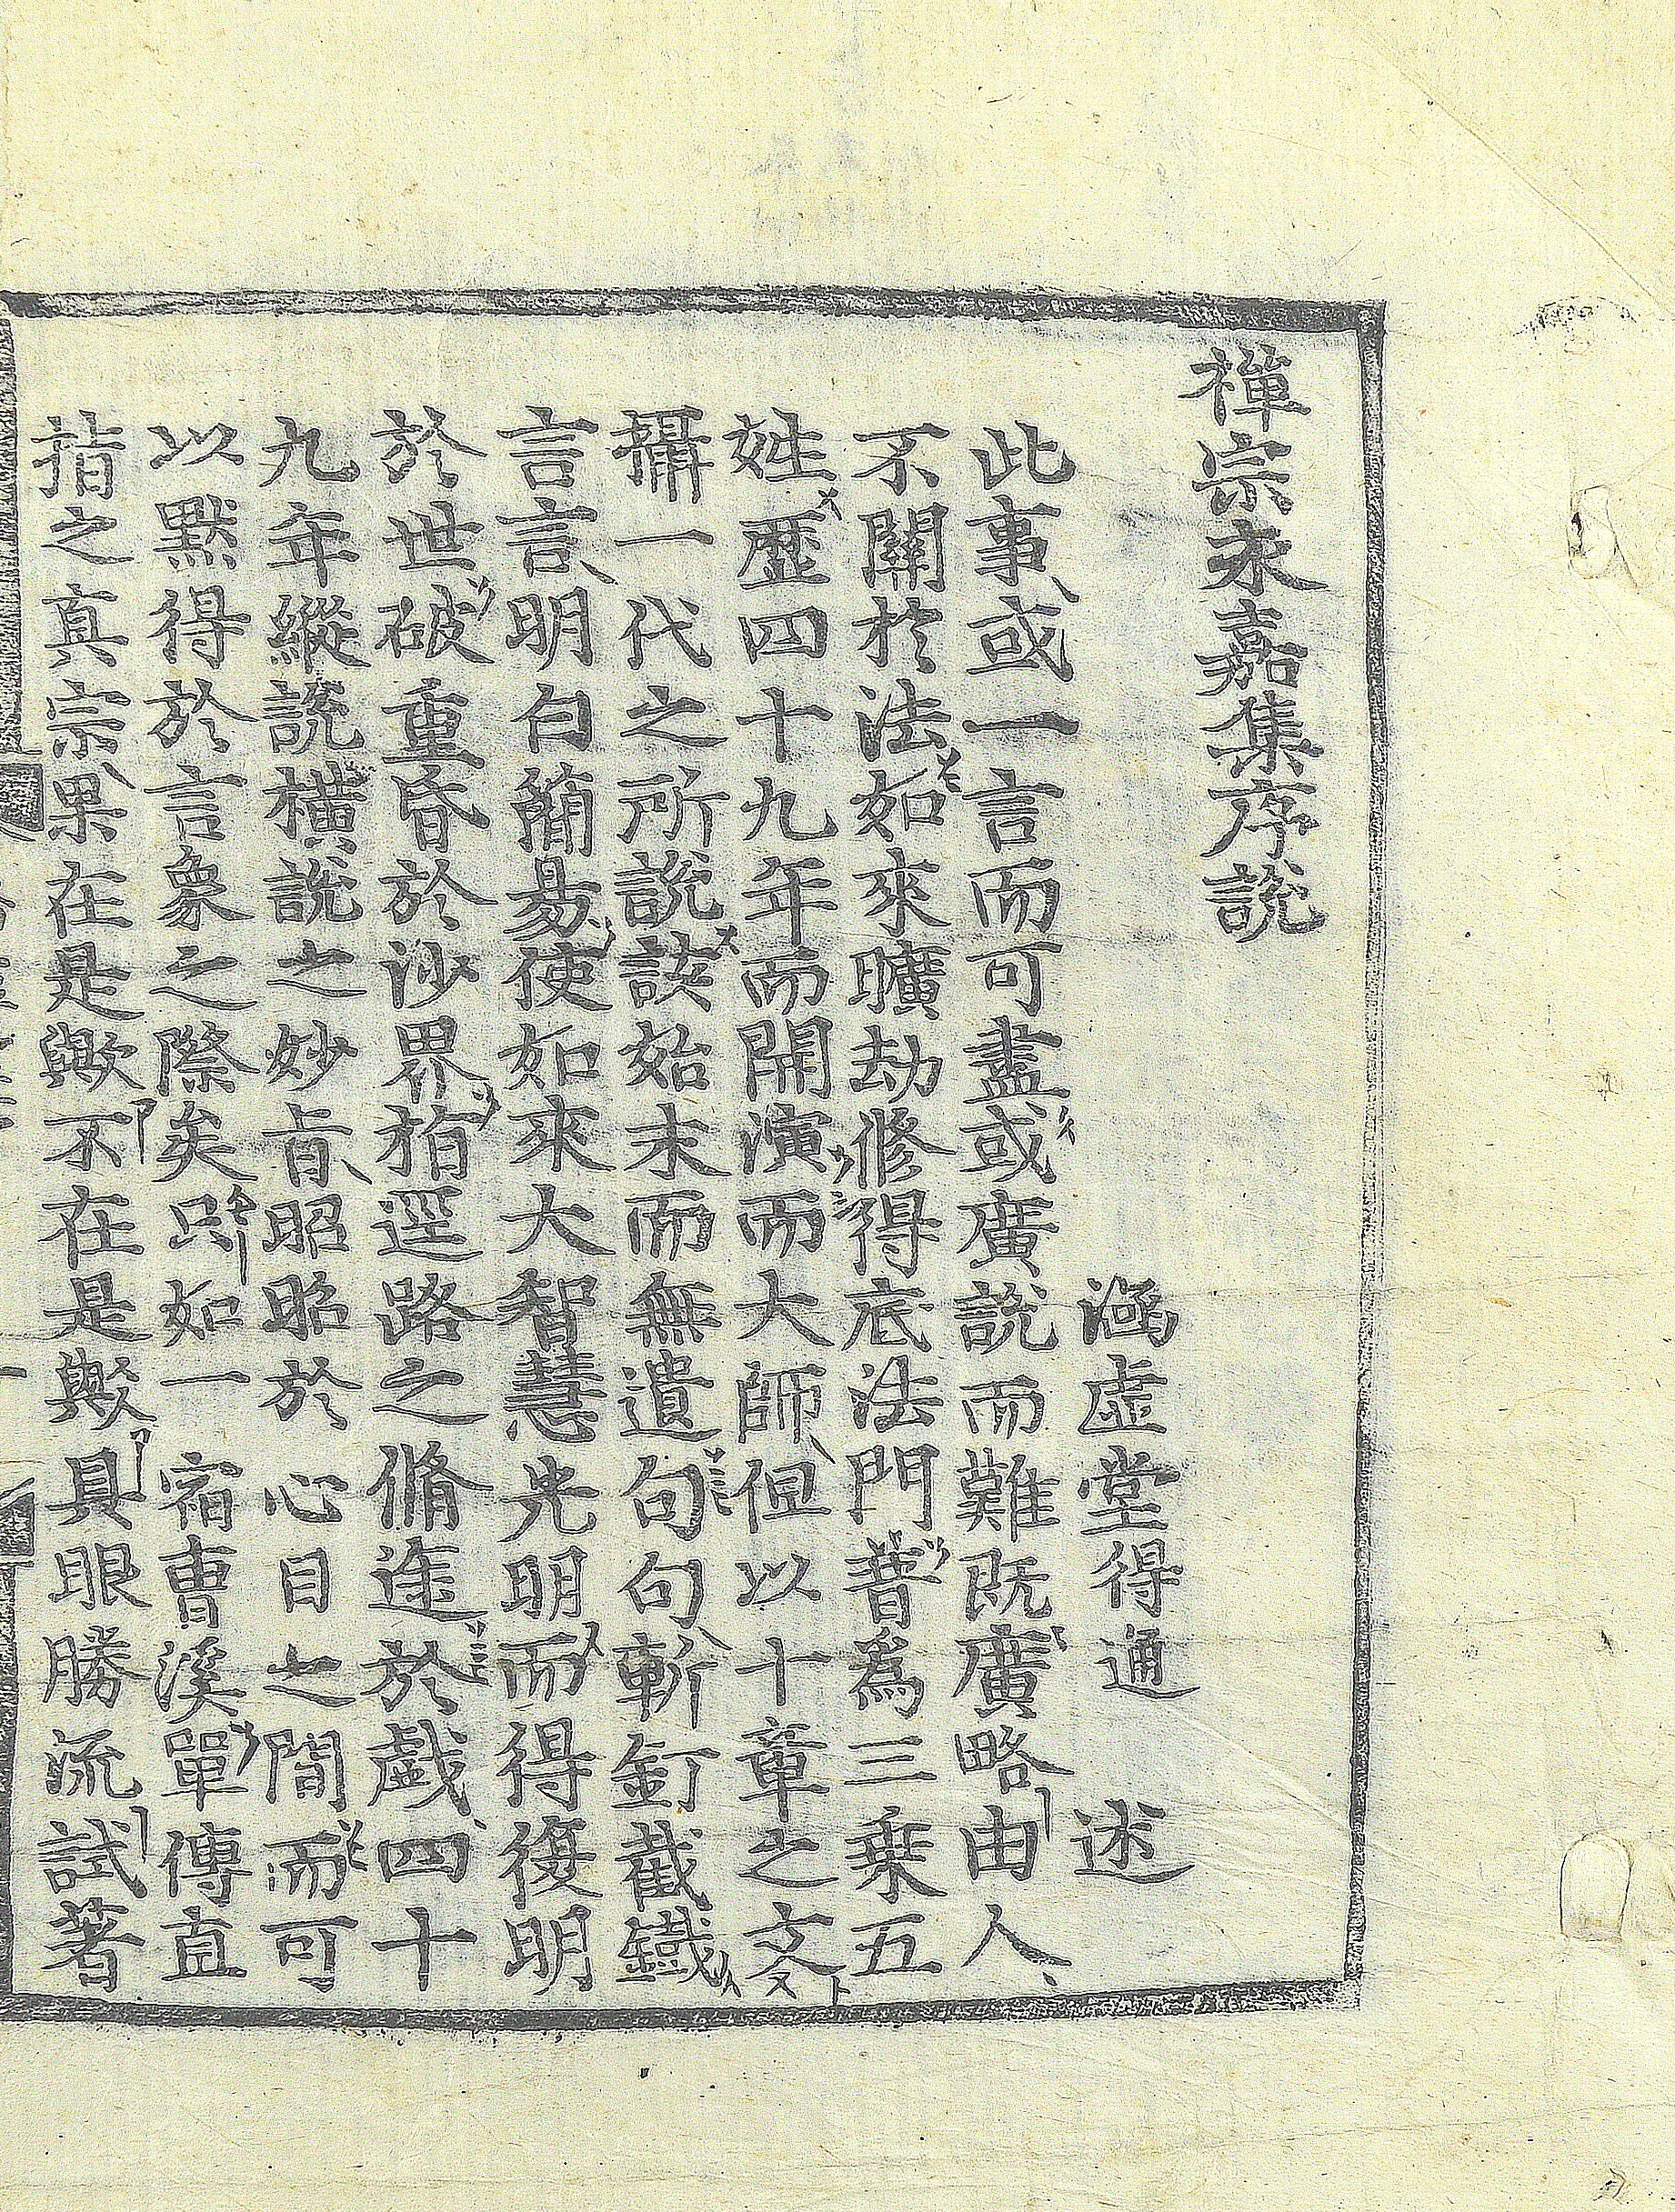 禪宗永嘉集序說
涵虛堂得通 述
此事或一言而可盡或廣說而難既廣略由人
不關於法如來曠劫修得底法門普爲三乘五
姓歷四十九年而開演而大師但以十章之文
攝一代之所說該始末而無遺句句斬釘截鐵
言言明白簡易使如來大智慧光明而得復明
於世破重昏於沙界指逕路之脩途於戱四十
九年縱說橫說之妙旨昭昭於心目之間而可
以默得於言象之際矣只如一宿曹溪單傳直
指之真宗果在是歟不在是歟具眼勝流試著